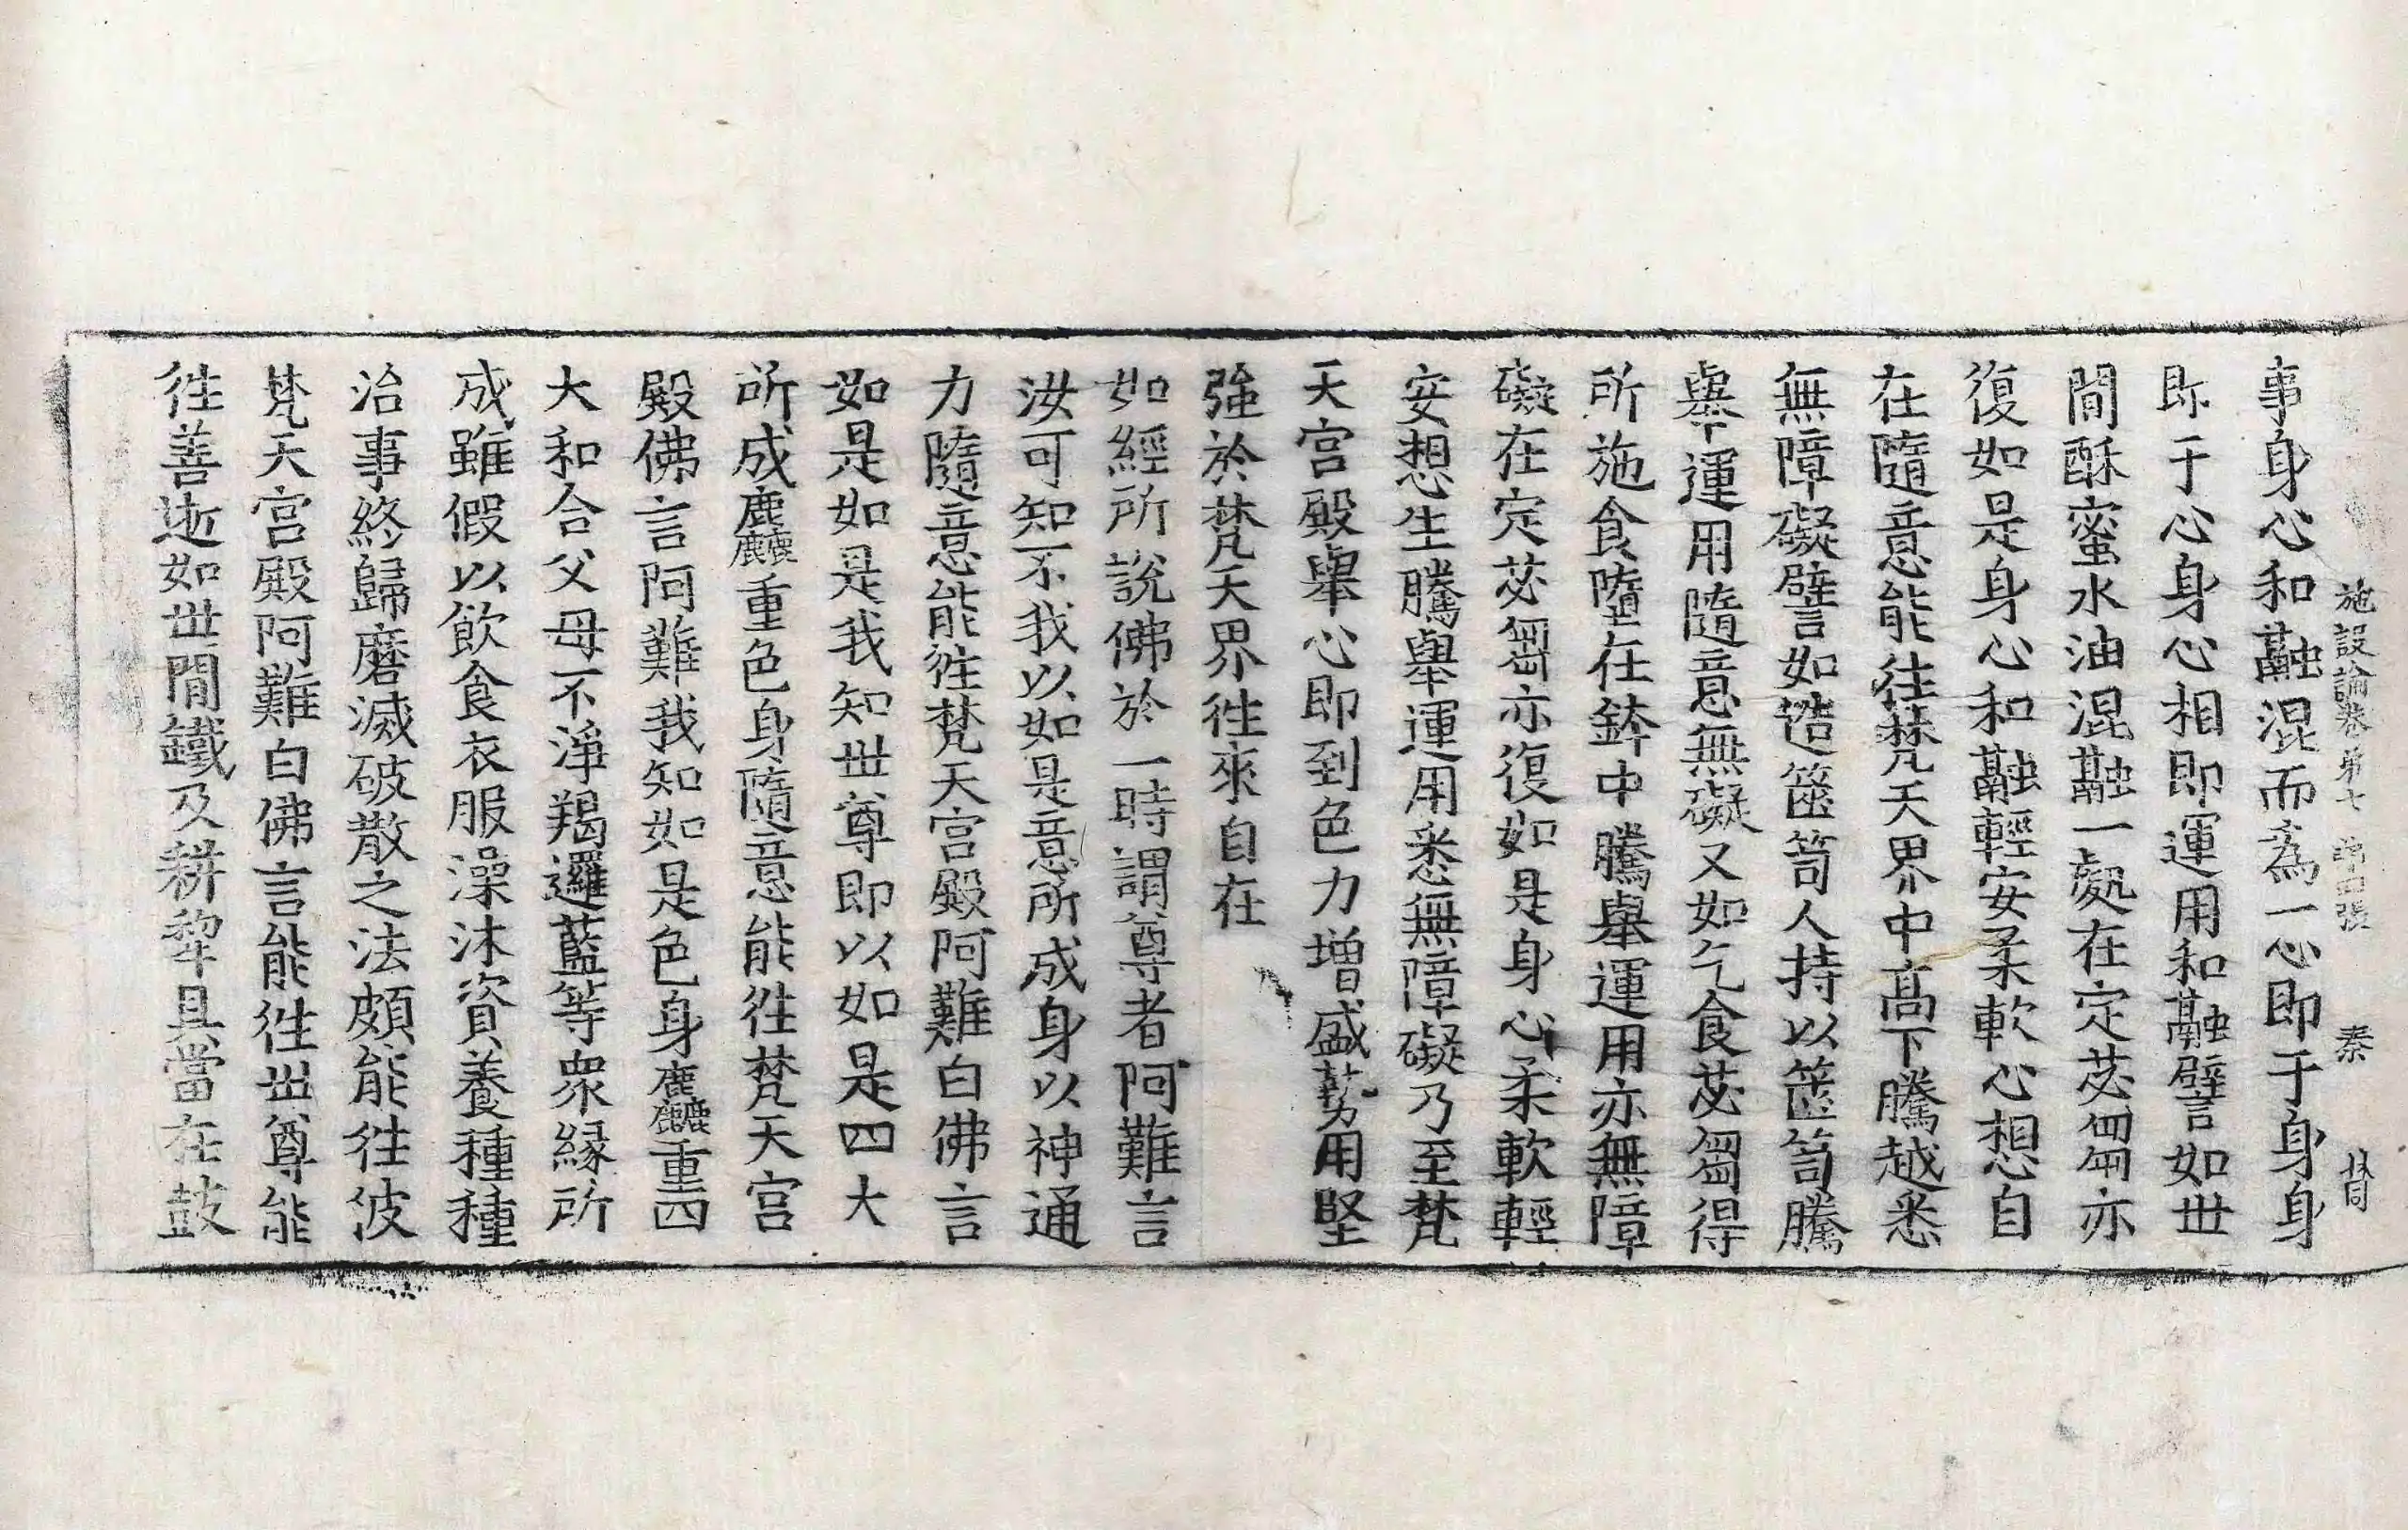 施設論卷第七 第四張 秦
事身心和融混而為一心即于身身
即于心身心相即運用和融譬如世
間酥蜜水油混融一處在定苾芻亦
復如是身心和融輕安柔軟心想自
在隨意能徃梵天界中高下騰越悉
無障礙譬如造箧笥人持以箧笥騰
舉運用隨意無礙又如乞食苾芻得
所施食墮在鉢中騰舉運用亦無障
礙在定苾芻亦復如是身心柔軟輕
安想生騰舉運用悉無障礙乃至梵
天宮殿舉心即到色力增盛勢用堅
強於梵天界徃來自在
如經所說佛於一時謂尊者阿難言
汝可知不我以如是意所成身以神通
力隨意能徃梵天宮殿阿難白佛言
如是如是我知世尊即以如是四大
所成麤重色身隨意能徃梵天宮
殿佛言阿難我知如是色身麤重四
大和合父母不淨羯邏藍等衆緣所
成雖假以飲食衣服澡沐資養種種
治事終歸磨滅破散之法頗能徃彼
梵天宮殿阿難白佛言能徃世尊能
徃善逝如世間鐵及耕犂具當在鼓